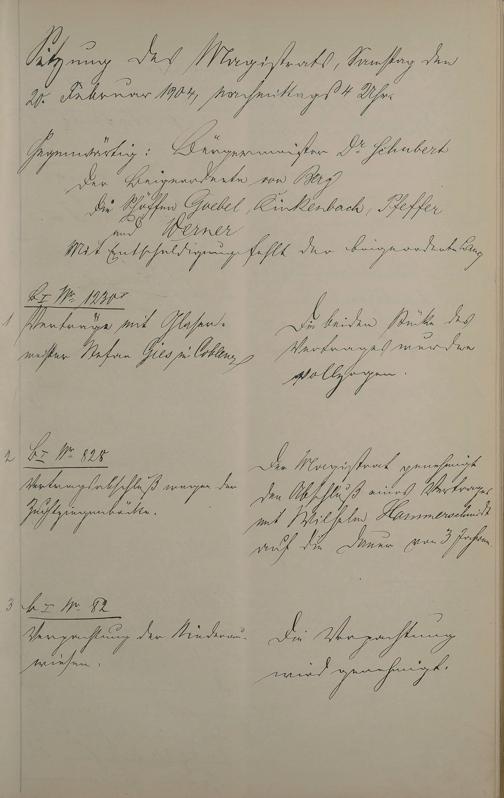 Sitzung des Magistrats, Samstag den
20. Februar 1904, nachmittags 4 Uhr.
Gegenwärtig: Bürgermeister Dr Schubert
Der Beigeordnete von Berg
die Schöffen Goebel, Kinkenbach, Pfeffer
und Werner
Mit Entschuldigung fehlt der Beigeordnete Lang
B I No 1230
1 Verträge mit Glaser-
meister Stefan Gies in Coblenz
Die beiden Stücke des
Vertrages wurden
vollzogen.
2 B I No 828
Vertragsabschluß wegen der
Zuchtziegenböcke.
Der Magistrat genehmigt
den Abschluß eines Vertrages
mit Wilhelm Hammerschmidt
auf die Dauer von 3 Jahren.
3 B I No 82
Verpachtung der Niederau-
wiesen.
Die Verpachtung
wird genehmigt.